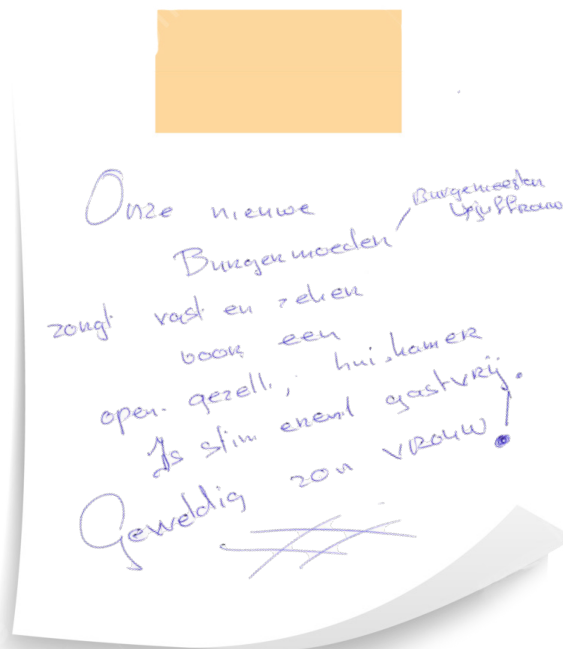 Onze nieuwe
Burgermoeder
Burgemeester
zorgt vast en zeker
voor een
open. gezell., huiskamer
Is stimerend gastvrij.
Geweldig zo'n vrouw!